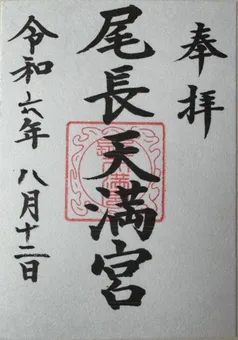 奉拝
尾長天満宮
令和六年 八月十二日